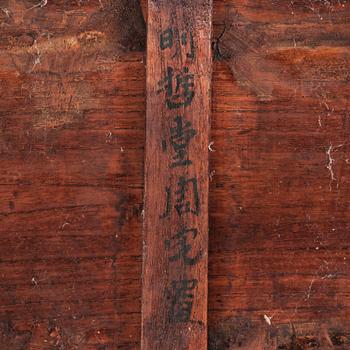 明哲堂周宅置